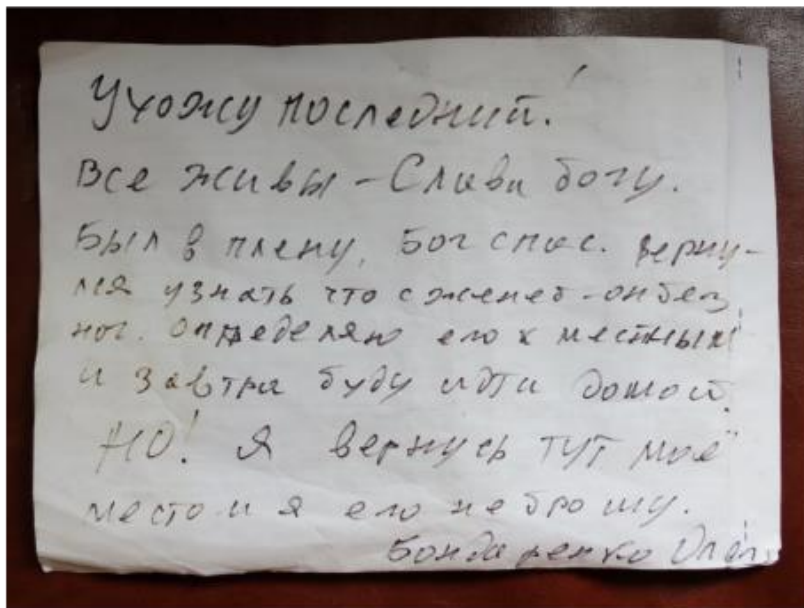 Ухожу последний!
Все живы - Слава богу.
Был в плену, Бог спас. верну-
лся узнать что с женей - он без
ног. Определяю его к местным
и завтра буду идти домой.
НО! Я вернусь тут моё
место и я его не брошу.
Бондаренко Олег